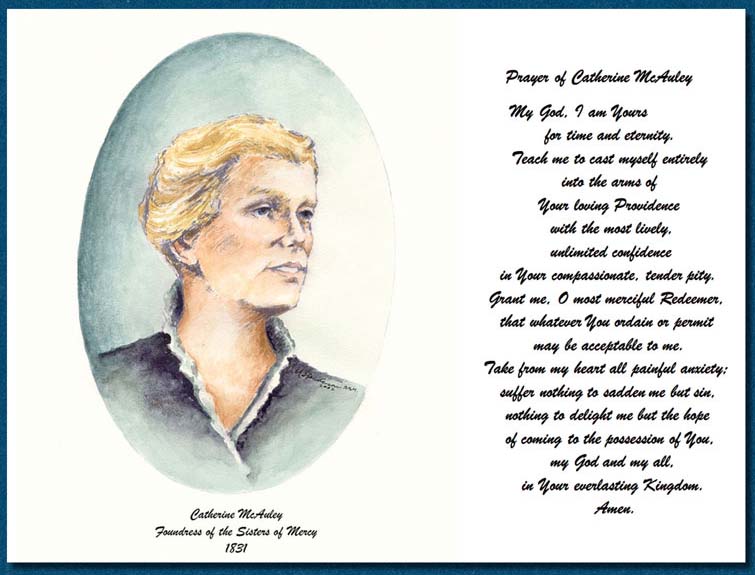 Catherine McAuley
Foundress of the Sisters of Mercy
1831
Prayer of Catherine McAuley
My God, I am Yours
for time and eternity.
Teach me to cast myself entirely
into the arms of
Your loving Providence
with the most lively,
unlimited confidence
in Your compassionate, tender pity.
Grant me, O most merciful Redeemer,
that whatever You ordain or permit
may be acceptable to me.
Take from my heart all painful anxiety;
suffer nothing to sadden me but sin,
nothing to delight me but the hope
of coming to the possession of You,
my God and my all,
in Your everlasting Kingdom.
Amen.